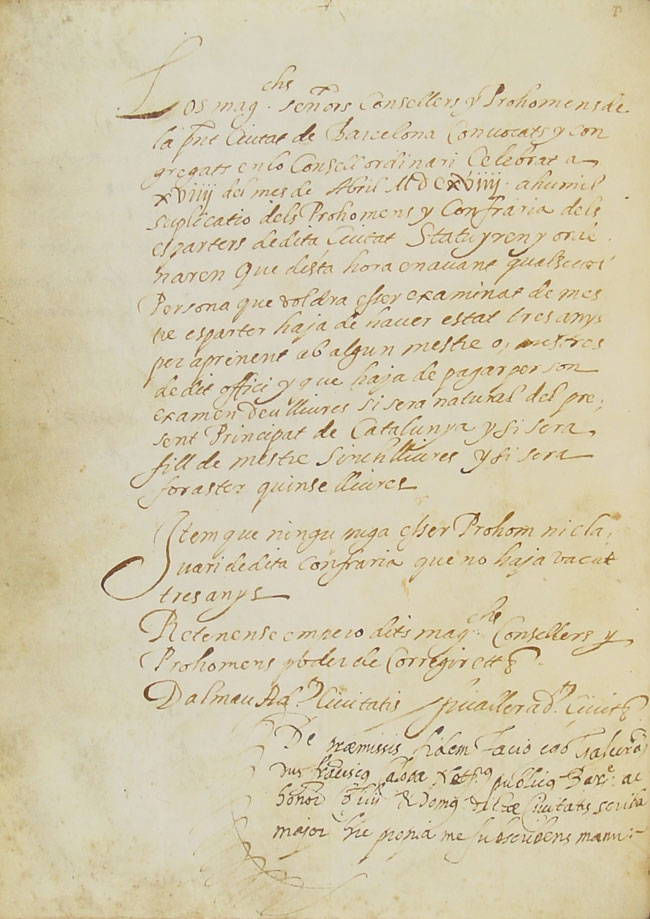 Los mag.chs señors Consellers y Prohomens de
la pnt Ciutat de Barcelona Convocats y con
gregats en lo Consell ordinari Celebrat a
xviiij del mes de Abril MDCxviiij. a humil
suplicatio dels Prohomens y Confraria dels
esparters de dita Ciutat Statuyren y orde
naren Que desta hora en avant qualsevol
Persona que voldra esser examinat de mes
tre esparter haja de haver estat tres anys
per aprenent ab algun mestre o, mestres
de dit offici y que haja de pagar per son
examen deu lliures si sera natural del pre,
sent Principat de Catalunya y si sera
fill de mestre sinch lliures y si sera
foraster quinse lliures
Item que ningu puga esser Prohom ni cla,
vari de dita Confraria que no haja vacat
tres anys
Retenense empero dits mag.chs Consellers y
Prohomens poder de Corregir etc.
Dalmau Civitatis Civit
De præmissis fidem facio ego
public Bar. ac
honor Civitatis scriba
major hic me subscribens manu